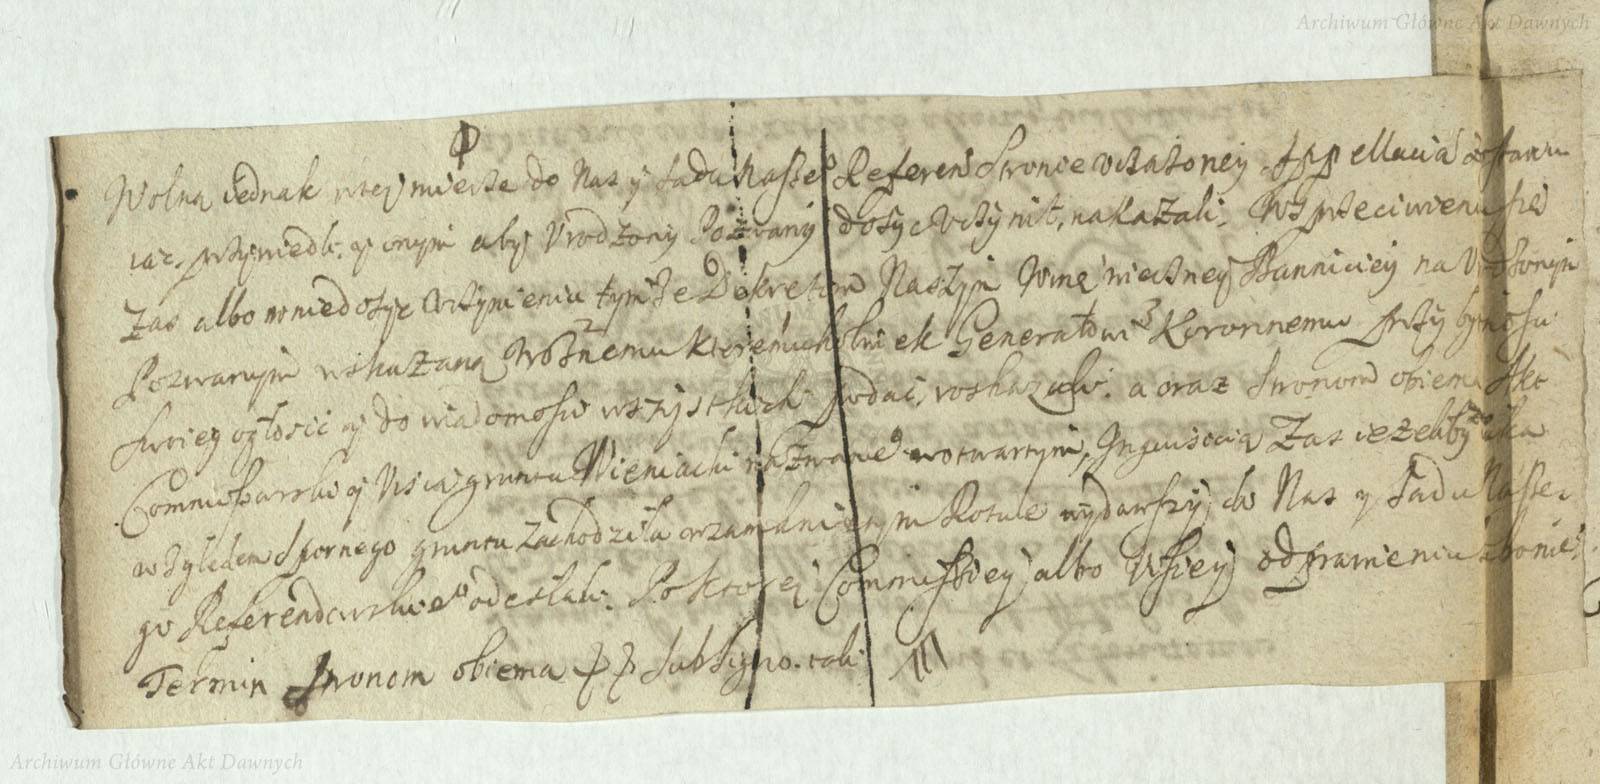 Archiwum Główne Akt Dawnych
Wolną iednak wtej mierze do Nas y Sądu Nasze⁰ Referen Stronie vrażoney Appellacią zostawu
iąc, aby Vrodzony Pozwany dosyc vczynił, nakazali. Wsprzeciwieniu się
zas albo wniedosyc vczynieniu tymże Dekretem Naszym winę wieczney Banniciey na Vrodzonym
Pozwanym wskazaną Woznemu ktoremukolwiek Generałowi Koronnemu przy bytnosci
swoiey ogłosić y do wiadomosci wszystkich podać, roskazali. a oraz Stronom obiema Akt
Commissarski y Visią gruntu Pieniacki nazwane⁰ wotwartym, Inquisicią zas ieżeliby iaka
względem Spornego gruntu zachodziła wzamknietym Rotule wydawszy, do Nas y Sądu Nasze
go Referendarskie⁰ odesłali. Po ktorej Commissiey albo Visiey odprawieniu
Termin Stronom obiema pp sub signo. tali
Archiwum Główne Akt Dawnych